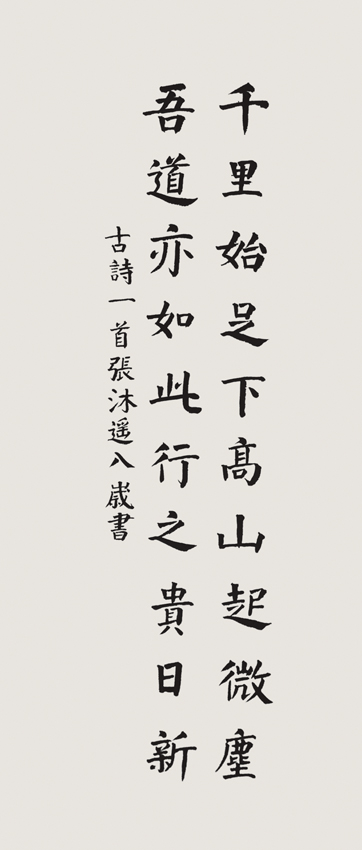 千里始足下高山起微塵
吾道亦如此行之貴日新
古詩一首張沐遥八歲書